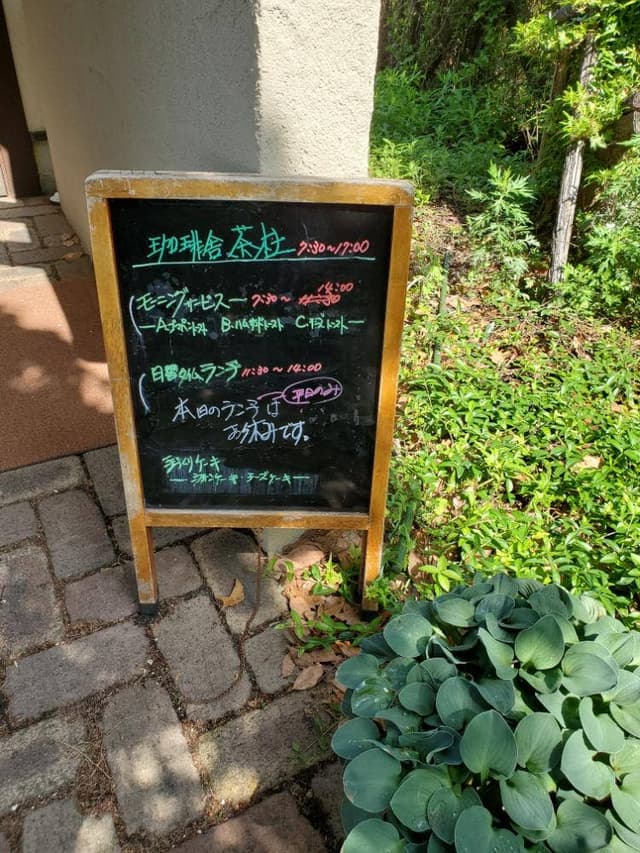 珈琲舎 茶柱 7:30〜17:00
モーニングサービス 7:30〜 14:00
B.ハムサンドトースト C.チーズトースト
日替タイムランチ 11:30〜14:00
平日のみ
本日のランチは
お休みです。
手づくりケーキ
シフォンケーキ・チーズケーキ